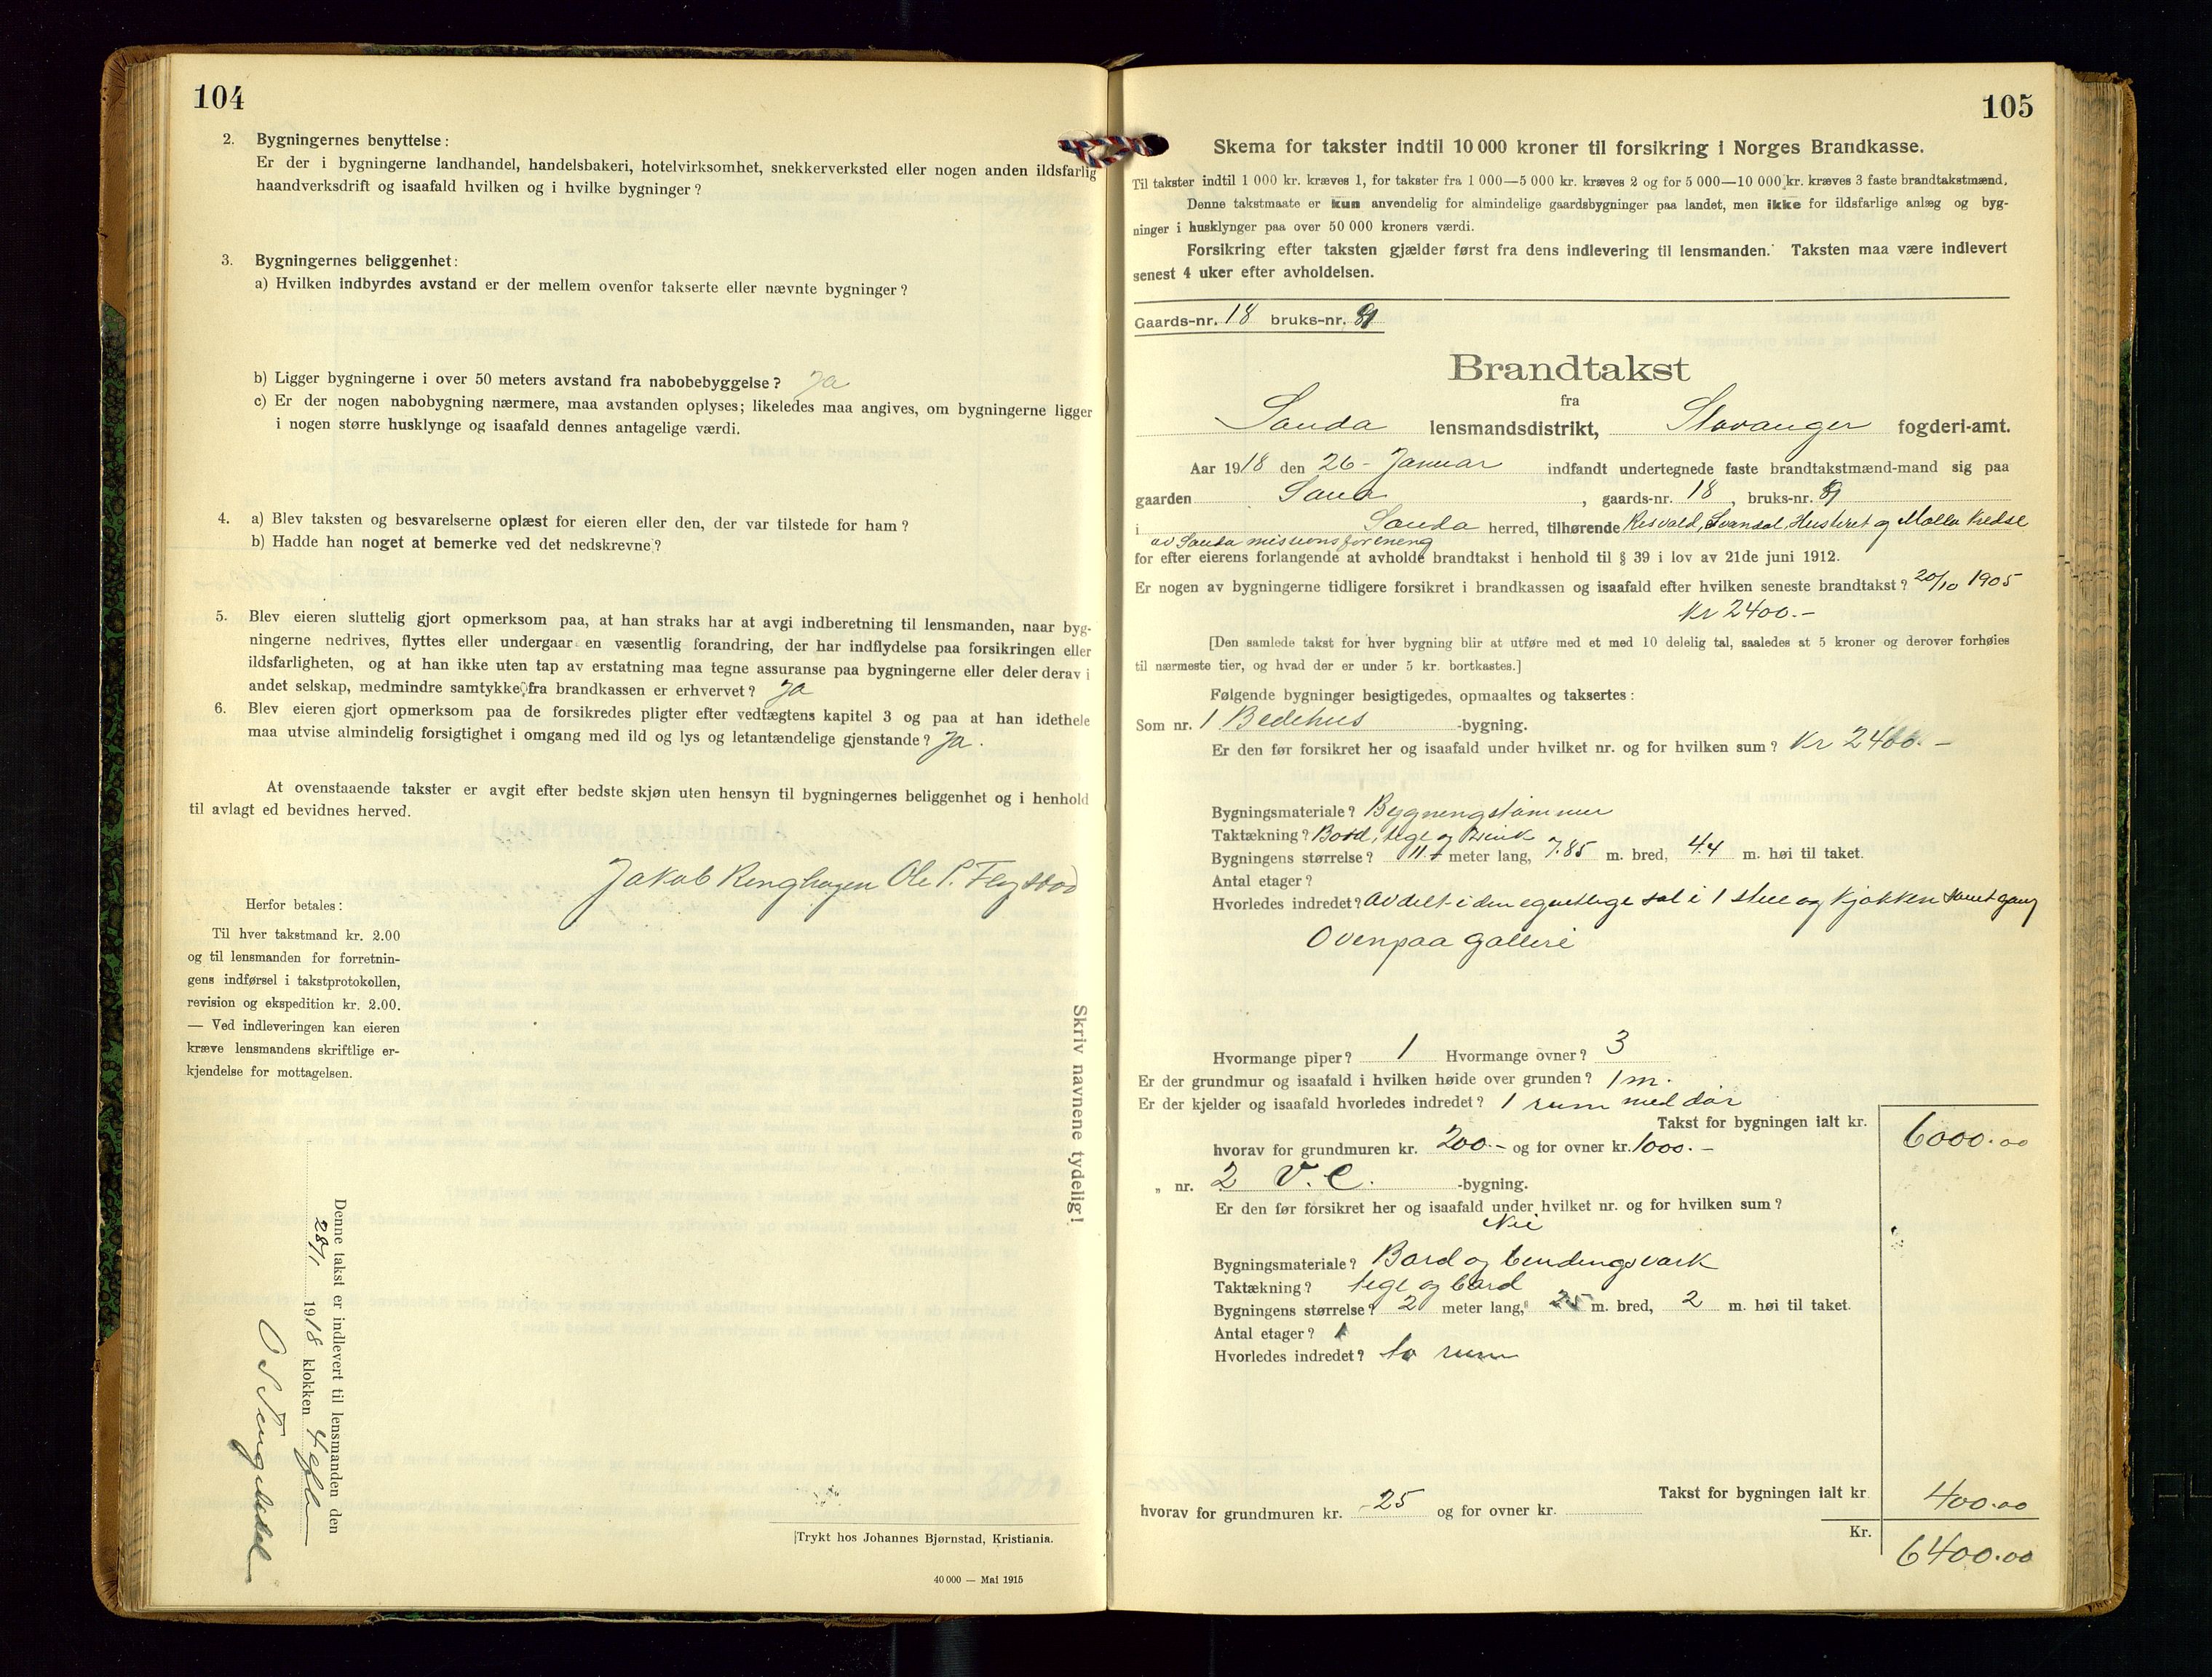 104
2. Bygningernes benyttelse:
Er der i bygningerne landhandel, handelsbakeri, hotelvirksomhet, snekkerverksted eller nogen anden ildsfarlig
haandverksdrift og isaafald hvilken og i hvilke bygninger?
3. Bygningernes beliggenhet:
a) Hvilken indbyrdes avstand er der mellem ovenfor takserte eller nævnte bygninger?
b) Ligger bygningerne i over 50 meters avstand fra nabobebyggelse? Ja
c) Er der nogen nabobygning nærmere, maa avstanden oplyses; likeledes maa angives, om bygningerne ligger
i nogen større husklynge og isaafald dennes antagelige værdi.
4. a) Blev taksten og besvarelserne oplæst for eieren eller den, der var tilstede for ham?
b) Hadde han noget at bemerke ved det nedskrevne?
5. Blev eieren sluttelig gjort opmerksom paa, at han straks har at avgi indberetning til lensmanden, naar byg-
ningerne nedrives, flyttes eller undergaar en væsentlig forandring, der har indflydelse paa forsikringen eller
ildsfarligheten, og at han ikke uten tap av erstatning maa tegne assuranse paa bygningerne eller deler derav i
andet selskap, medmindre samtykke fra brandkassen er erhvervet? Ja
6. Blev eieren gjort opmerksom paa de forsikredes pligter efter vedtægtens kapitel 3 og paa at han idethele
maa utvise almindelig forsigtighet i omgang med ild og lys og letantændelige gjenstande? Ja.
At ovenstaaende takster er avgit efter bedste skjøn uten hensyn til bygningernes beliggenhet og i henhold
til avlagt ed bevidnes herved.
Jakob Ole P.
Herfor betales:
Til hver takstmand kr. 2.00
og til lensmanden for forretnin-
gens indførsel i takstprotokollen,
revision og ekspedition kr. 2.00.
— Ved indleveringen kan eieren
kræve lensmandens skriftlige er-
kjendelse for mottagelsen.
Skriv navnene tydelig!
Denne takst er indlevert til lensmanden den
28/1 1918 klokken 4
Trykt hos Johannes Bjørnstad, Kristiania.
40 000 — Mai 1915
105
Skema for takster indtil 10 000 kroner til forsikring i Norges Brandkasse.
Til takster indtil 1 000 kr. kræves 1, for takster fra 1 000—5 000 kr. kræves 2 og for 5 000—10 000 kr. kræves 3 faste brandtakstmænd.
Denne takstmaate er kun anvendelig for almindelige gaardsbygninger paa landet, men ikke for ildsfarlige anlæg og byg-
ninger i husklynger paa over 50 000 kroners værdi.
Forsikring efter taksten gjælder først fra dens indlevering til lensmanden. Taksten maa være indlevert
senest 4 uker efter avholdelsen.
Gaards-nr. 18 bruks-nr.
Brandtakst
fra
Sauda lensmandsdistrikt, Stavanger fogderi-amt.
Aar 1918 den 26 - Januar indfandt undertegnede faste brandtakstmænd-mand sig paa
gaarden , gaards-nr. 18 , bruks-nr.
i Sauda herred, tilhørende Svandal, og
av Sauda missionsforening
for efter eierens forlangende at avholde brandtakst i henhold til § 39 i lov av 21de juni 1912.
Er nogen av bygningerne tidligere forsikret i brandkassen og isaafald efter hvilken seneste brandtakst? 20/10 1905
Kr 2400.-
[Den samlede takst for hver bygning blir at utføre med et med 10 delelig tal, saaledes at 5 kroner og derover forhøies
til nærmeste tier, og hvad der er under 5 kr. bortkastes.]
Følgende bygninger besigtigedes, opmaaltes og taksertes:
Som nr. 1 Bedehus -bygning.
Er den før forsikret her og isaafald under hvilket nr. og for hvilken sum? Kr 2400.-
Bygningsmateriale? Bygningstømmer
Taktækning? Bord, tegl og zink
Bygningens størrelse? meter lang, 7.85 m. bred, 4.4 m. høi til taket.
Antal etager?
Hvorledes indredet? Avdelt i den egentlige sal i 1 stue og kjøkken samt gang
Ovenpaa galleri
Hvormange piper? 1 Hvormange ovner? 3
Er der grundmur og isaafald i hvilken høide over grunden? 1 m.
Er der kjelder og isaafald hvorledes indredet? 1 rum med dør
Takst for bygningen ialt kr. 6000.00
hvorav for grundmuren kr. 200.- og for ovner kr. 1000.-
„ nr. 2 V.C. -bygning.
Er den før forsikret her og isaafald under hvilket nr. og for hvilken sum?
Nei
Bygningsmateriale? Bord og bindingsverk
Taktækning? tegl og bord
Bygningens størrelse? 2 meter lang, m. bred, 2 m. høi til taket.
Antal etager? 1
Hvorledes indredet? to rum
Takst for bygningen ialt kr 400.00
hvorav for grundmuren kr. 25 og for ovner kr.
Kr. 6400.00